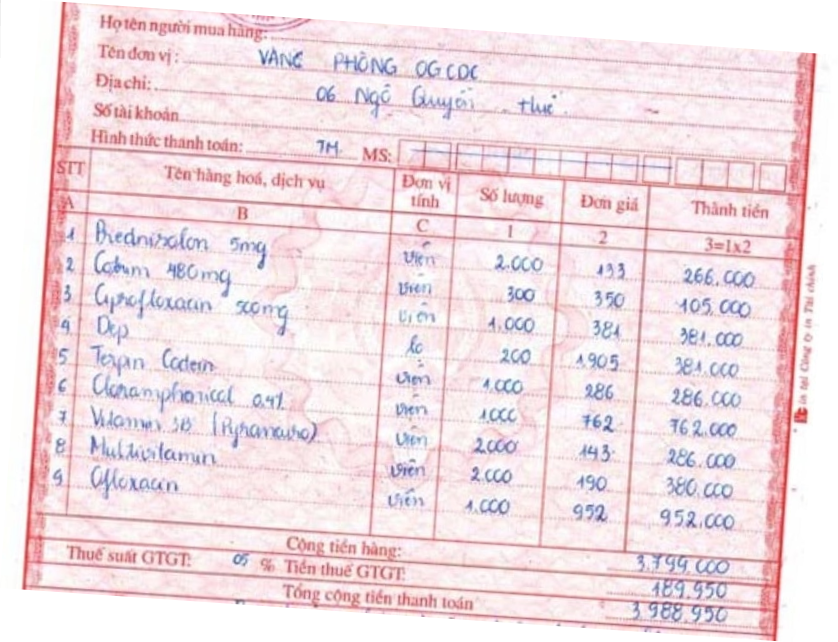 Họ tên người mua hàng:
Tên đơn vị: VĂNG PHÒNG OGCDC
Địa chỉ: 06 Ngô Quyền Huế
Số tài khoản
Hình thức thanh toán: TM MS:
STT Tên hàng hoá, dịch vụ Đơn vị tính Số lượng Đơn giá Thành tiền
A B C 1 2 3=1x2
1 Prednisolon 5mg viên 2.000 133 266.000
2 Cotrim 480mg viên 300 350 105.000
3 Ciprofloxacin 500mg viên 1.000 381 381.000
4 Dep lo 200 1.905 381.000
5 Terpin Codein viên 1.000 286 286.000
6 Cloramphenical 0.4% viên 1.000 762 762.000
7 Vitamin 3B viên 2.000 143 286.000
8 Multivitamin viên 2.000 190 380.000
9 Ofloxacin viên 1.000 952 952.000
Cộng tiền hàng: 3.799.000
Thuế suất GTGT: 05 % Tiền thuế GTGT: 189.950
Tổng cộng tiền thanh toán 3.988.950
in tại Công ty in Tài chính